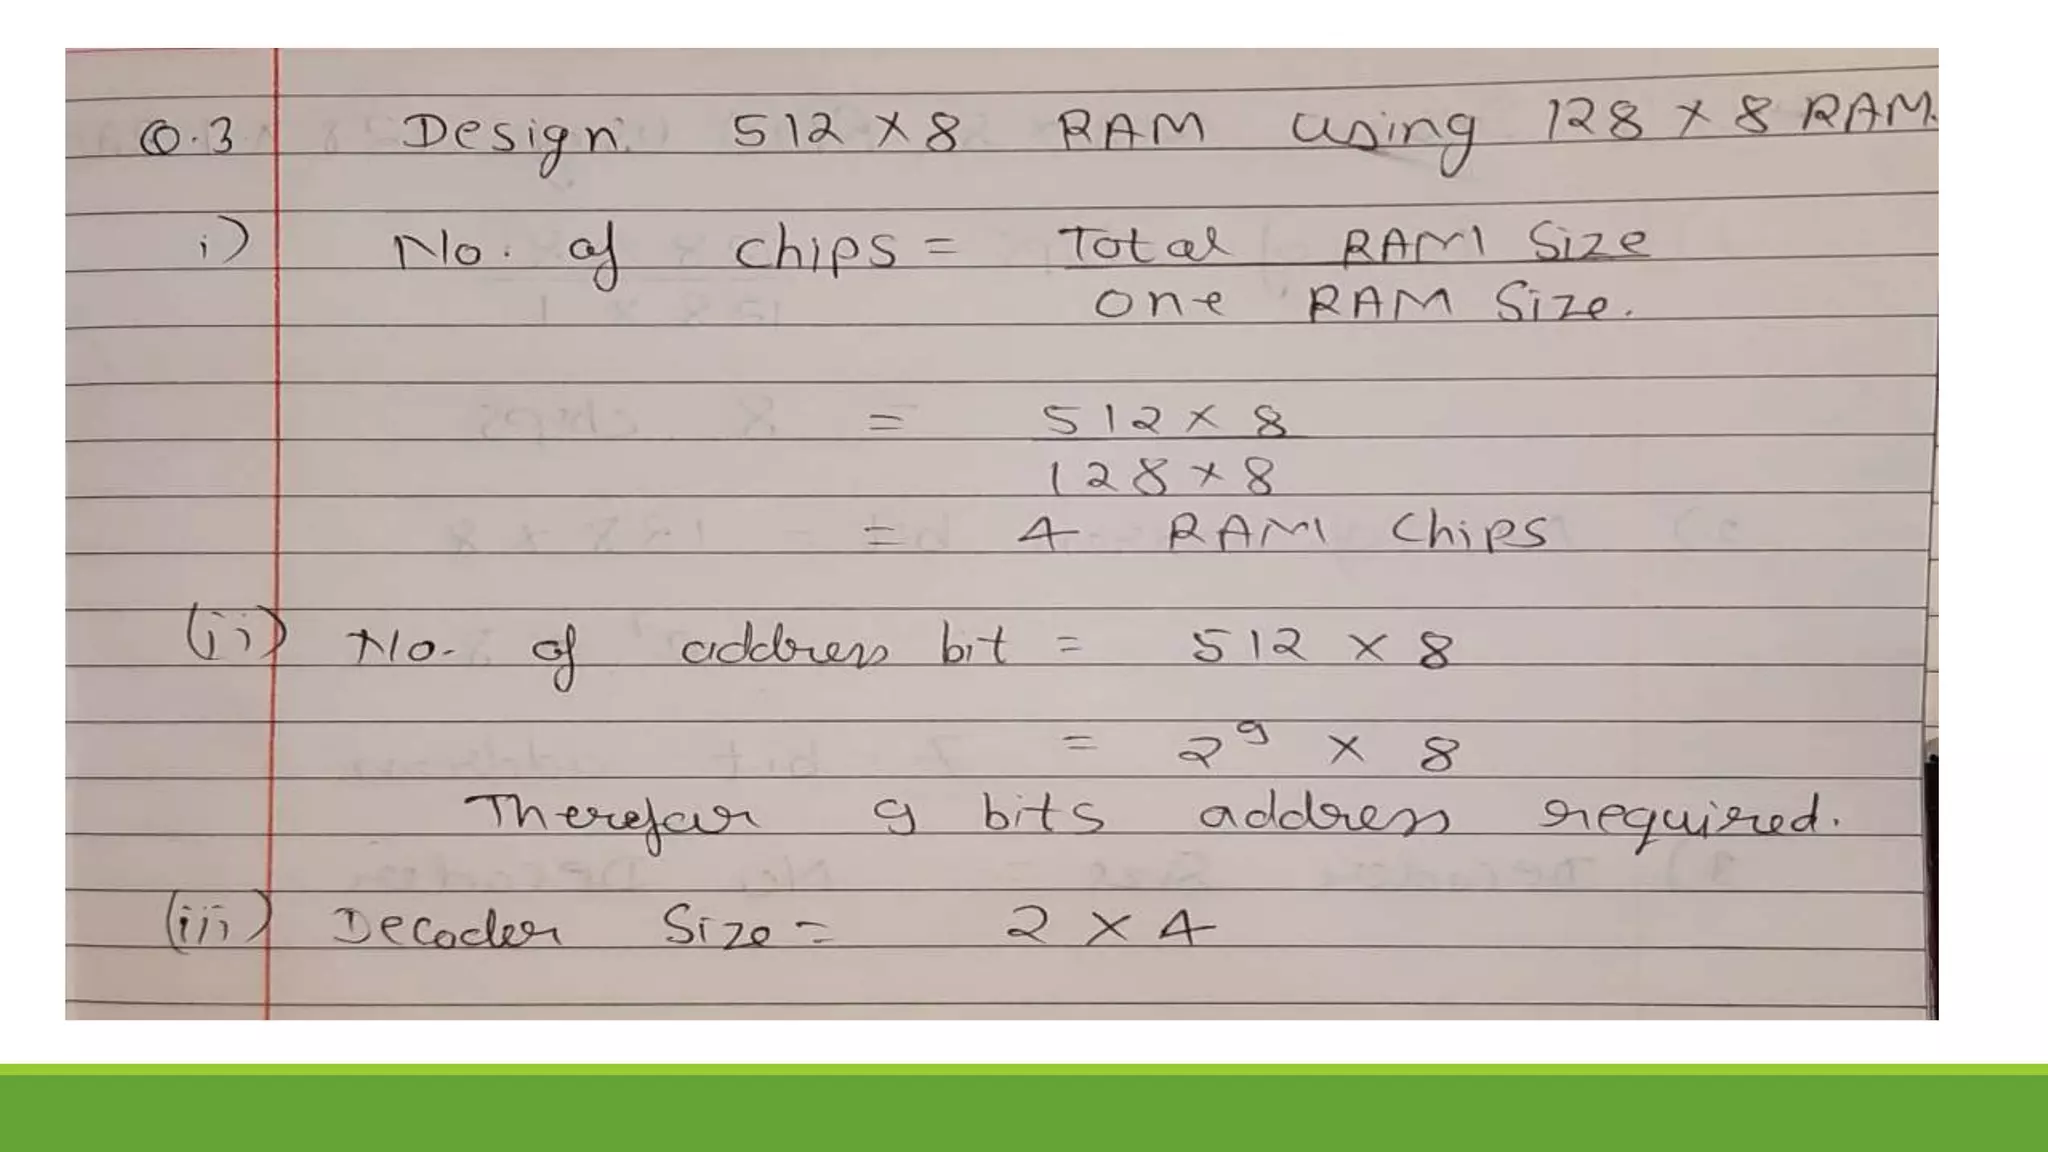 Q.3 Design 512 × 8 RAM using 128 × 8 RAM.
i) No. of chips = Total RAM Size
one RAM Size.
= 512 × 8
128 × 8
= 4 RAM Chips
(ii) No. of address bit = 512 × 8
= 2⁹ × 8
Therefor 9 bits address required.
(iii) Decoder Size = 2 × 4